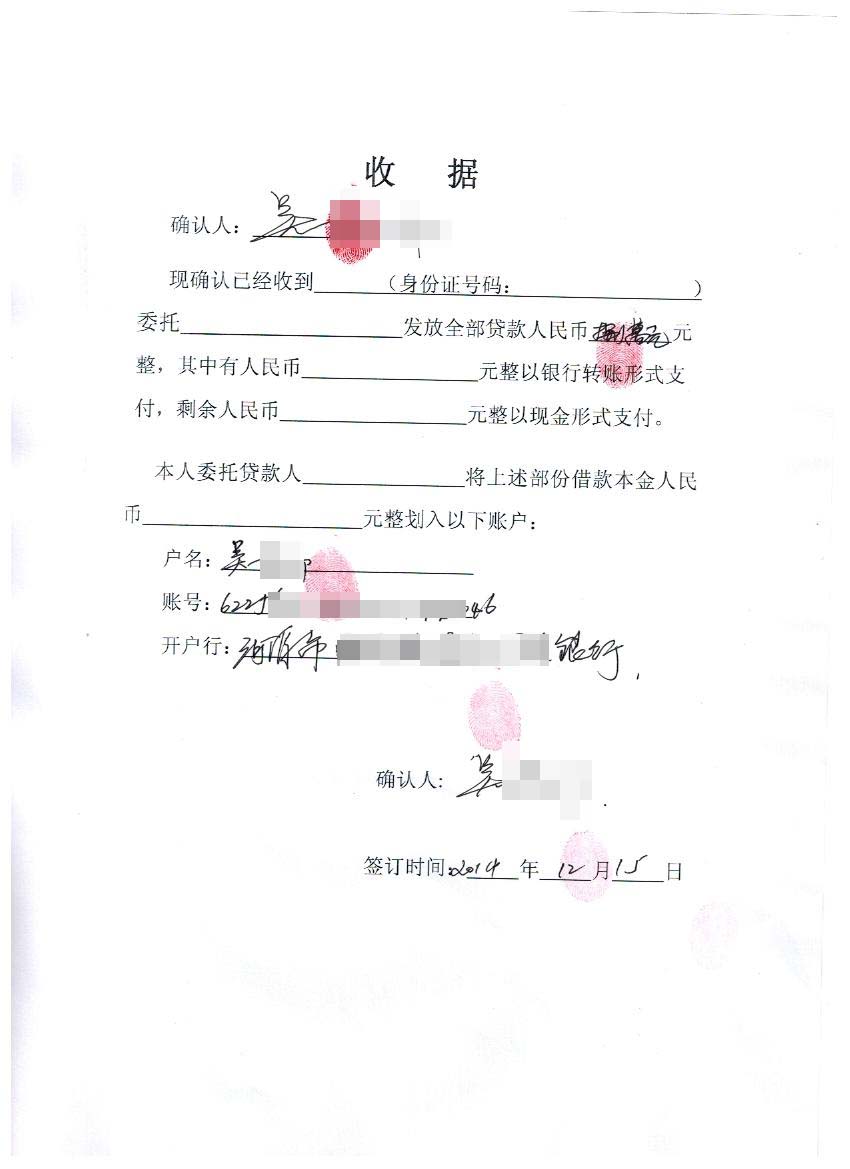 收 据
确认人：吴
现确认已经收到______（身份证号码：______）
委托______发放全部贷款人民币捌万元元
整，其中有人民币______元整以银行转账形式支
付，剩余人民币______元整以现金形式支付。
本人委托贷款人______将上述部份借款本金人民
币______元整划入以下账户：
户名：吴
账号：622 46
开户行： 市 银行
确认人：吴
签订时间：2014年12月15日